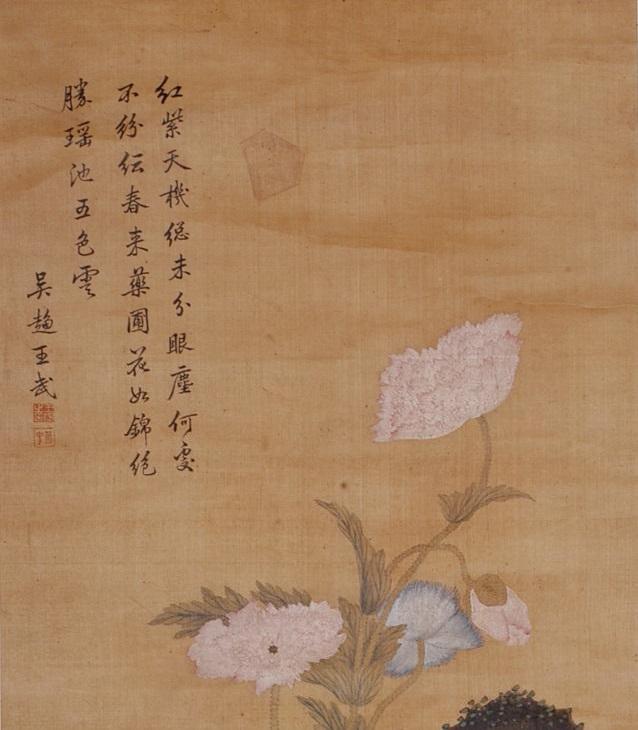 紅紫天機總未分眼塵何處
不紛紜春来藥圃花如錦絶
勝瑶池五色雲
吳趨王武